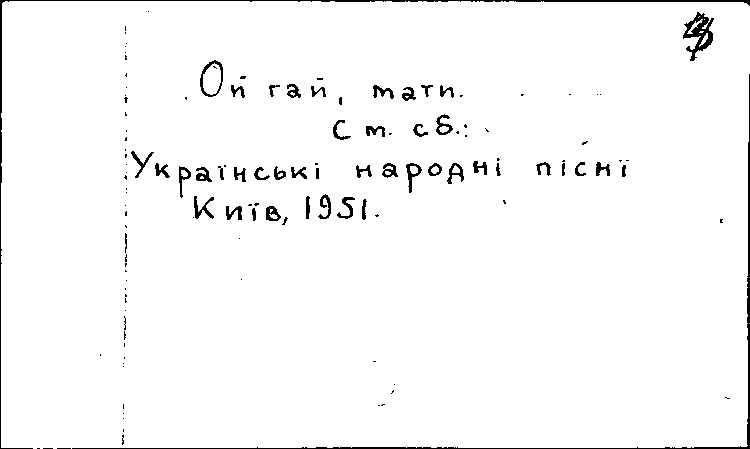 Ой гай, мати.
Ст. сб.:
Українські народні піснї
Київ, 1951.